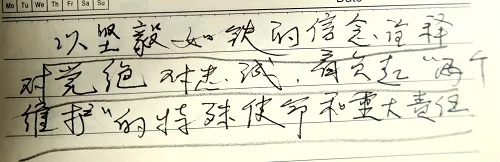 Mo Tu We Th Fr Sa Su
Date
以坚毅如铁的信念诠释
对党绝对忠诚,肩负起“两个
维护”的特殊使命和重大责任